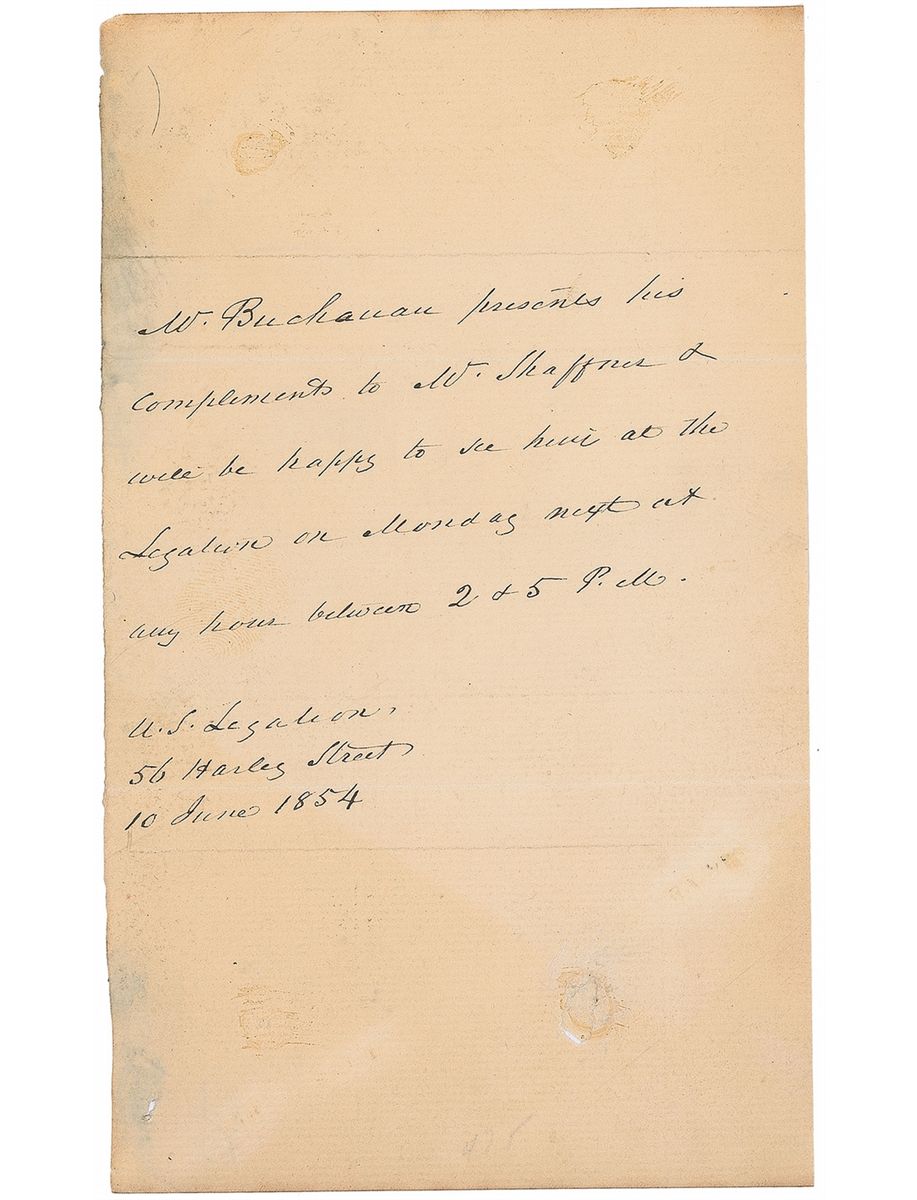 Mr. Buchanan presents his
compliments to Mr. Shaffner &
will be happy to see him at the
Legation on Monday next at
any hour between 2 & 5 P.M.
U.S. Legation,
56 Harley Street
10 June 1854